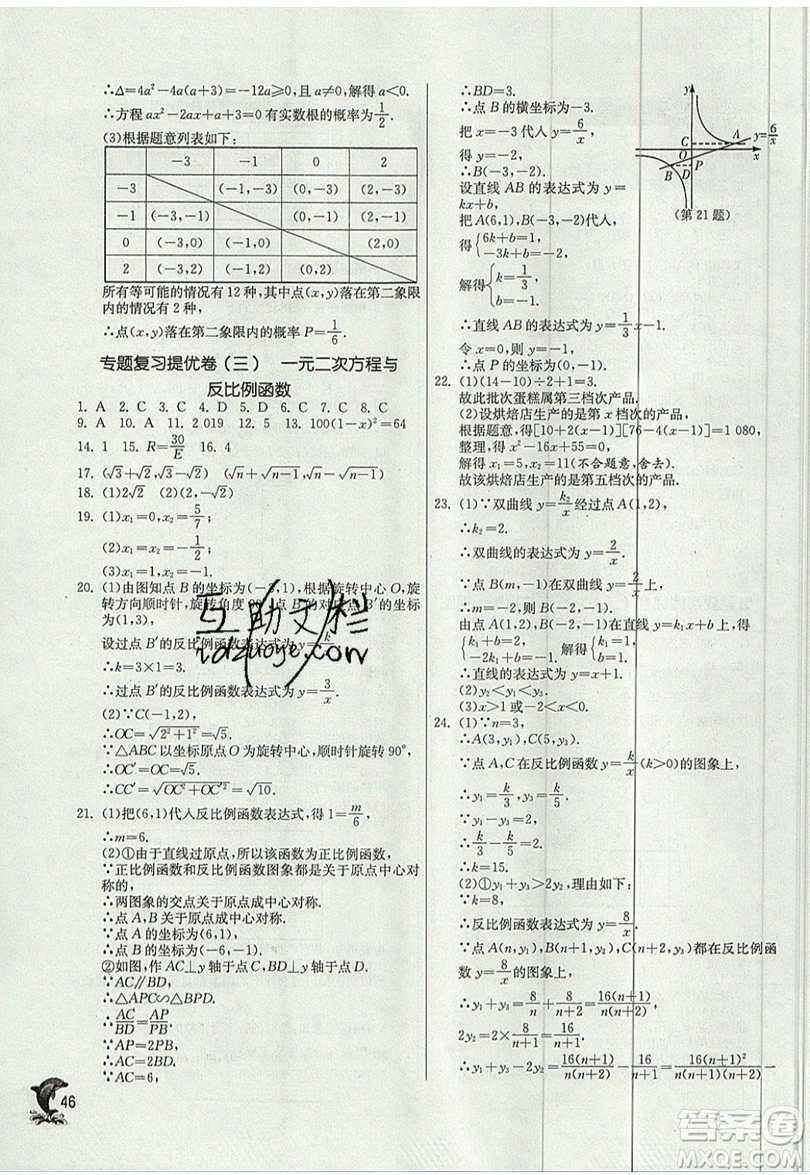 ∴Δ=4a²-4a(a+3)=-12a≥0,且 a≠0,解得 a<0.
∴方程 ax²-2ax+a+3=0 有实数根的概率为 1/2.
(3)根据题意列表如下:
-3 -1 0 2
-3 (-1,-3) (0,-3) (2,-3)
-1 (-3,-1) (0,-1) (2,-1)
0 (-3,0) (-1,0) (2,0)
2 (-3,2) (-1,2) (0,2)
所有等可能的情况有 12 种,其中点(x,y)落在第二象限内的情况有 2 种,
∴点(x,y)落在第二象限内的概率 P=1/6.
专题复习提优卷(三) 一元二次方程与
反比例函数
1. A 2. C 3. C 4. D 5. D 6. C 7. B 8. C
9. A 10. A 11. 2 019 12. 5 13. 100(1-x)²=64
14. 1 15. R=30/E 16. 4
17. (√3+√2) (√n+√n-1)(√n-√n-1)
18. (1)2√2 (2)√2
19. (1)x₁=0,x₂=5/7;
(2)x₁=3,x₂=-1/2;
(3)x₁=x₂=1.
20. (1)由图知点 B 的坐标为(-3,1),根据旋转中心 O,旋
转方向顺时针,旋转角度 90°,点 B 的对应点 B′的坐标
为(1,3),
设过点 B′的反比例函数表达式为 y=k/x,
∴k=3×1=3.
∴过点 B′的反比例函数表达式为 y=3/x.
(2)∵C(-1,2),
∴OC=√2²+1²=√5.
∵△ABC 以坐标原点 O 为旋转中心,顺时针旋转 90°,
∴OC′=OC=√5.
∴CC′=√OC²+OC′²=√10.
21. (1)把(6,1)代入反比例函数表达式,得 1=m/6,
∴m=6.
(2)①由于直线过原点,所以该函数为正比例函数.
∵正比例函数和反比例函数图象都是关于原点中心对
称的,
∴两图象的交点关于原点成中心对称.
∴点 A,B 关于原点成中心对称.
∵点 A 的坐标为(6,1),
∴点 B 的坐标为(-6,-1).
②如图,作 AC⊥y 轴于点 C,BD⊥y 轴于点 D.
∵AC∥BD,
∴△APC∽△BPD.
∴AC/BD=AP/PB.
∵AP=2PB,
∴AC=2BD.
∵AC=6,
46
∴BD=3.
∴点 B 的横坐标为-3.
把 x=-3 代入 y=6/x,
得 y=-2.
∴B(-3,-2).
设直线 AB 的表达式为 y=
kx+b,
把 A(6,1),B(-3,-2)代入,
得{6k+b=1,
-3k+b=-2,
解得{k=1/3,
b=-1.
∴直线 AB 的表达式为 y=1/3x-1.
令 x=0,解得 y=-1.
∴点 P 的坐标为(0,-1).
y
y=6/x
C
A
O
x
B
P
D
(第 21 题)
22. (1)(14-10)÷2+1=3.
故此批次蛋糕属第三档次产品.
(2)设烘焙店生产的是第 x 档次的产品,
根据题意,得[10+2(x-1)][76-4(x-1)]=1 080,
整理,得 x²-16x+55=0,
解得 x₁=5,x₂=11(不合题意,舍去).
故该烘焙店生产的是第五档次的产品.
23. (1)∵双曲线 y=k₂/x经过点 A(1,2),
∴k₂=2.
∴双曲线的表达式为 y=2/x.
∵点 B(m,-1)在双曲线 y=2/x上,
∴m=-2,则 B(-2,-1).
由点 A(1,2),B(-2,-1)在直线 y=k₁x+b 上,
得{k₁+b=2,
-2k₁+b=-1, 解得{k₁=1,
b=1.
∴直线的表达式为 y=x+1.
(2)y₂<y₁<y₃.
(3)x>1 或-2<x<0.
24. (1)∵n=3,
∴A(3,y₁),C(5,y₃).
∵点 A,C 在反比例函数 y=k/x(k>0)的图象上,
∴y₁=k/3,y₃=k/5.
∵y₁-y₃=2,
∴k/3-k/5=2.
∴k=15.
(2)①y₁+y₃>2y₂,理由如下:
∵k=8,
∴反比例函数的表达式为 y=8/x.
∵点 A(n,y₁),B(n+1,y₂),C(n+2,y₃)都在反比例函
数 y=8/x 的图象上,
∴y₁+y₃=8/n+8/n+2=16(n+1)/n(n+2),
2y₂=2×8/n+1=16/n+1.
∴y₁+y₃-2y₂=16(n+1)/n(n+2)-16/n+1=16(n+1)²/n(n+1)(n+2)-
互助文栏
idzuoye.com
答案圈
MXQE.COM